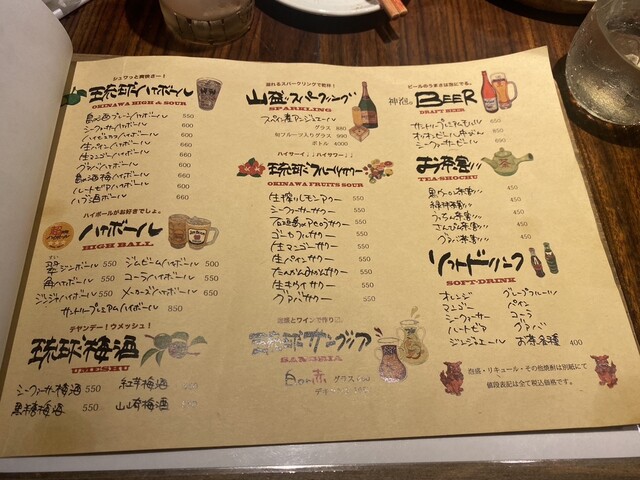 シュワっと爽快さー!
琉球ハイボール
OKINAWA HIGH & SOUR
島酒プレーンハイボール 550
シークヮーサーハイボール 600
ハイビスカスハイボール 600
生パインハイボール 660
生マンゴーハイボール 660
グァバハイボール 660
島酒梅ハイボール 660
ルートビアハイボール 660
ハブ酒ボール 660
ハイボールがお好きでしょ。
ハイボール
HIGH BALL
翠ジンボール 550 ジムビームハイボール 500
角ハイボール 550 コーラハイボール 550
ジンジャーハイボール 550 メーカーズハイボール 650
サントリープレミアムハイボール 850
テヤンデー!ウメッシュ!
琉球梅酒
UMESHU
シークヮーサー梅酒 550 紅芋梅酒
黒糖梅酒 550 山崎梅酒
溢れるスパークリングで乾杯!
山盛スパークリング
SPARKLING
スペイン産アンジュエール
グラス 880
旬フルーツ入りグラス 990
ボトル 4000
ハイサー♪♩ハイサワー♪♩
琉球フルーツサワー
OKINAWA FRUITS SOUR
生搾レモンサワー
シークヮーサーサワー
石垣島アセロラサワー
ゴーヤフルサワー
生マンゴーサワー
生パインサワー
たんかんみかんサワー
生キウイサワー
グァバサワー 550
泡盛とワインで作り
琉球サングリア
SANGRIA
白or赤 グラス
ビールのうまさは泡にでる。
神泡。BEER
DRAFT BEER
サントリープレミアムモルツ 650
オリオンビール中びん 650
シークヮーサービール 690
お茶割
TEA-SHOCHU
黒ウーロン茶割 450
緑茶割 450
うっちん茶割 450
さんぴん茶割 450
グァバ茶割 450
ソフトドリンク
SOFT-DRINK
オレンジ グレープフルーツ
マンゴー パイン
シークヮーサー コーラ
ルートビア グァバ
ジンジャエール お茶各種 400
泡盛・リキュール・その他焼酎は別紙にて
値段表記は全て税込価格です。